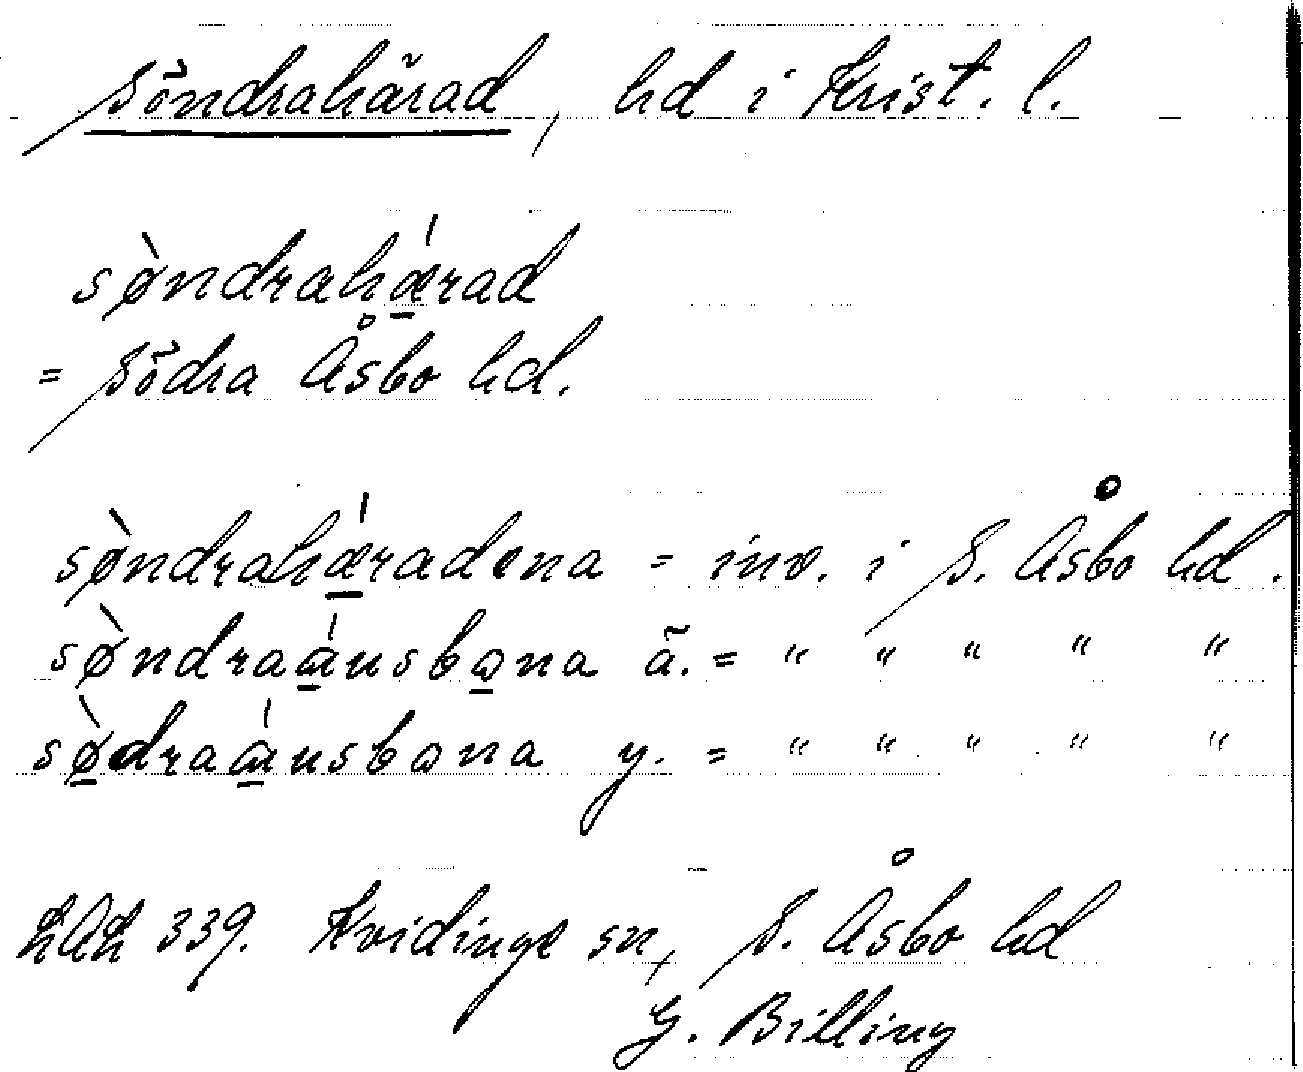 Söndrahärad, hd i Krist. l.
sø̀ndrahǽ̱rad
= Södra Åsbo hd.
sø̀ndrahǽ̱radena = inv. i S. Åsbo hd.
sø̀ndraá̱usbo̱na ä. = " " " " "
sø̱̀draá̱usbona y. = " " " " "
339. Kvidinge sn, S. Åsbo hd
G. Billing